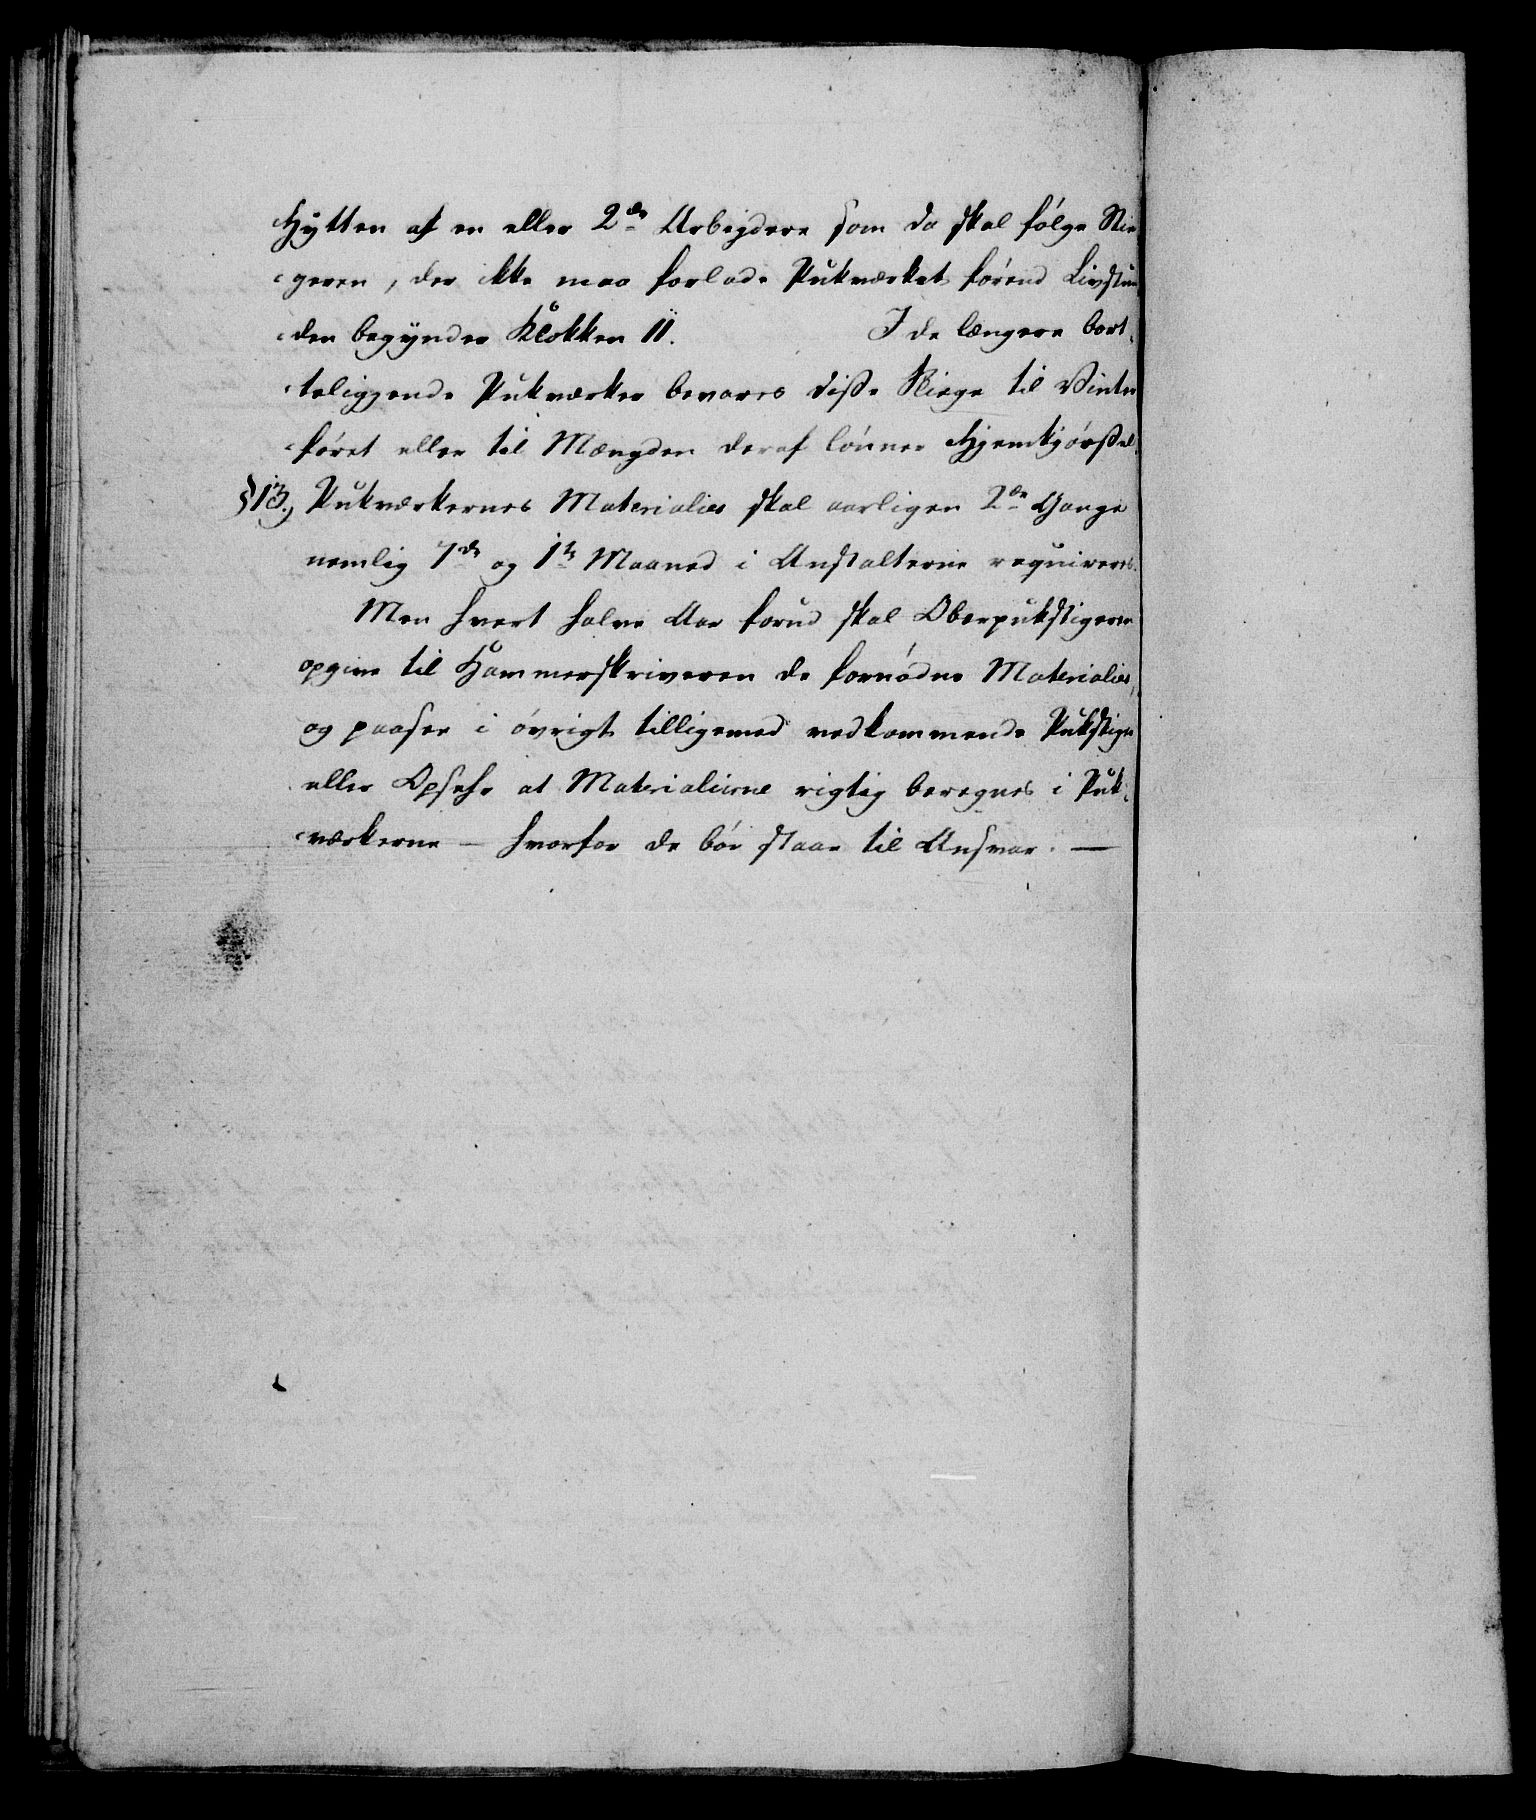 Hytten af en eller 2de Arbeydere som da skal følge Sti¬
geren, der ikke maa forlade Pukværket førend Livstun¬
den begynder Klokken 11. I de længere bort¬
teliggende Pukværker bevares disse Sliege til Vinter
føret eller til Mængden deraf lønner Hjemkjørssel.
§13, Pukværkernes Materialier skal aarligen 2de Gange
nemlig 7de og 1te Maaned i Anstalterne reqvireres.
Men hvert halve Aar forud skal Oberpukstigeren
opgive til Hammerskriveren de fornødne Materialier,
og paaser i øvrigt tilligemed vedkommende Pukstiger
eller Opsehr at Materialierne rigtig beregnes i Puk¬
værkerne – hvorfor de bør staae til Ansvar. —